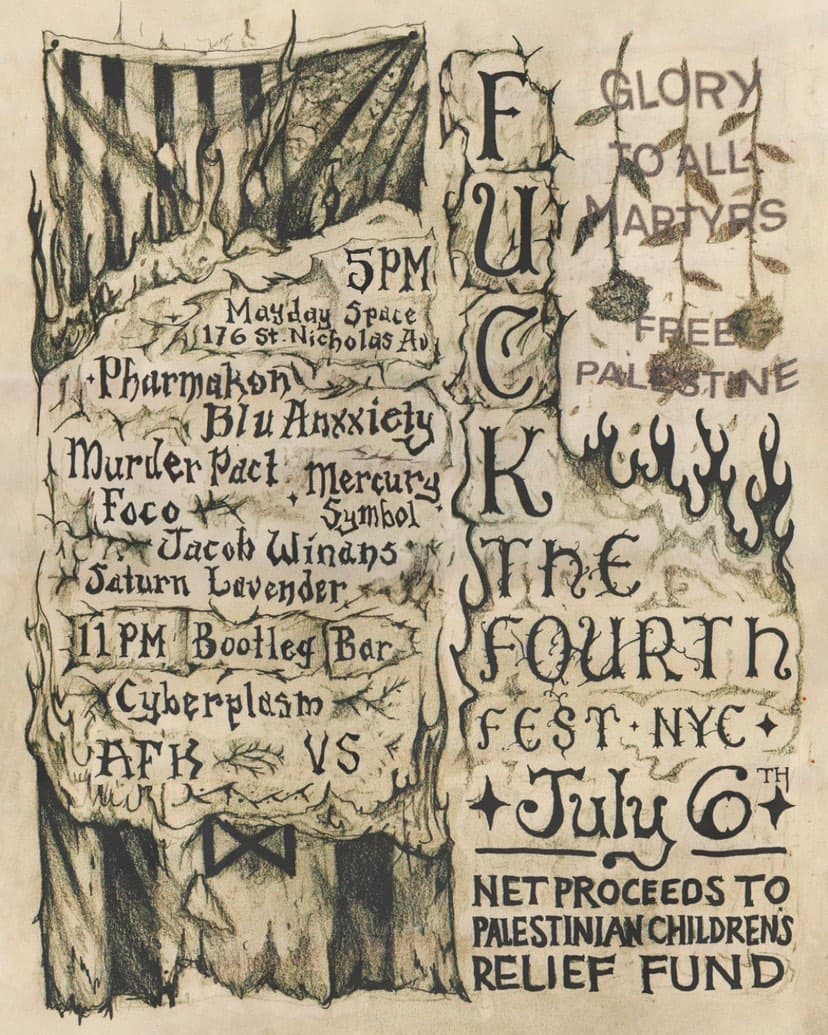 5PM
Mayday Space
176 St. Nicholas Av
Pharmakon
Blu Anxxiety
Murder Pact
Mercury
Symbol
Foco
Jacob Winans
Saturn Lavender
11PM Bootleg Bar
Cyberplasm
AFK VS
FUCK
THE
FOURTH
FEST · NYC
July 6TH
NET PROCEEDS TO
PALESTINIAN CHILDREN'S
RELIEF FUND
GLORY
TO ALL
MARTYRS
FREE
PALESTINE